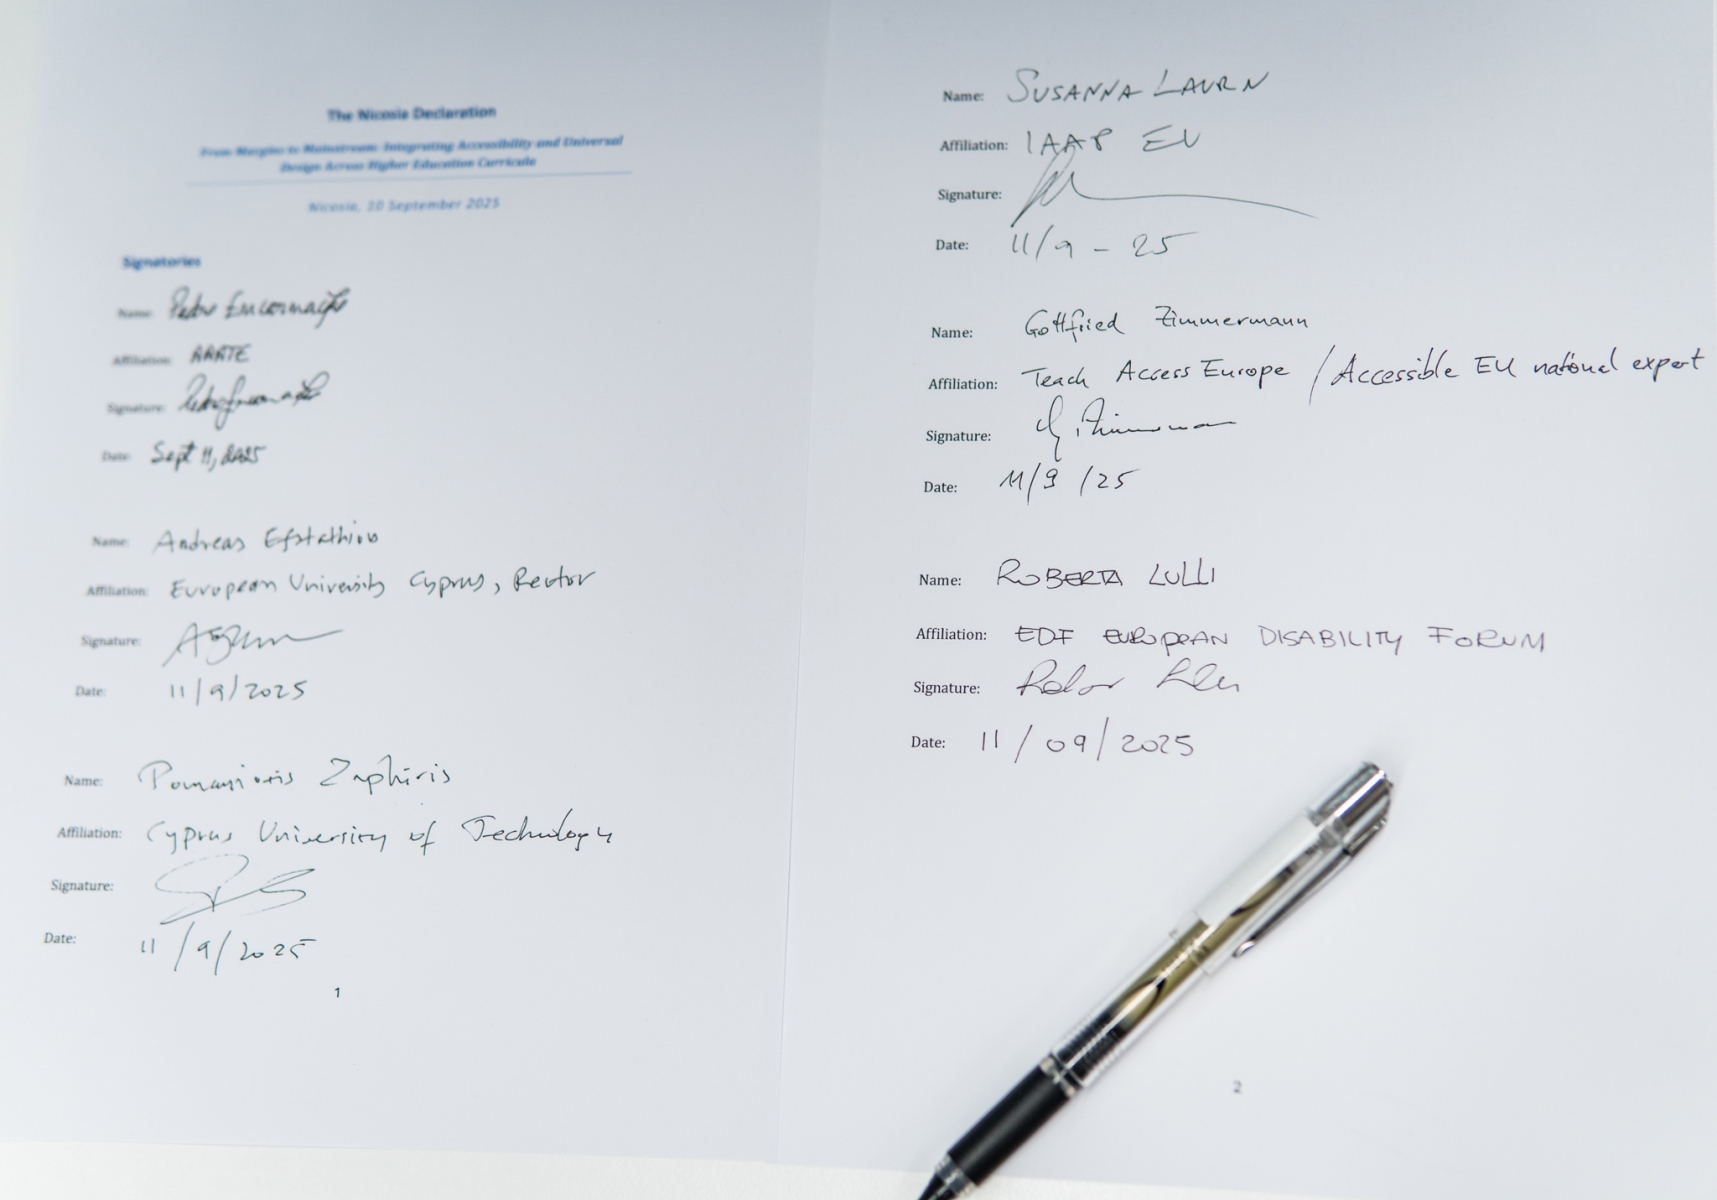 The Nicosia Declaration
From Margins to Mainstream: Integrating Accessibility and Universal
Design Across Higher Education Curricula
Nicosia, 10 September 2025
Signatories
Name: Pedro Encarnação
Affiliation: AAATE
Signature:
Date: Sept 11, 2025
Name: Andreas Efstathiou
Affiliation: European University Cyprus, Rector
Signature:
Date: 11/9/2025
Name: Zaphiris
Affiliation: Cyprus University of Technology
Signature:
Date: 11/9/2025
1
Name: SUSANNA LAURIN
Affiliation: IAAP EU
Signature:
Date: 11/9-25
Name: Gottfried Zimmermann
Affiliation: Teach Access Europe / Accessible EU national expert
Signature: G. Zimmermann
Date: 11/9/25
Name: ROBERTA LULLI
Affiliation: EDF EUROPEAN DISABILITY FORUM
Signature:
Date: 11/09/2025
2